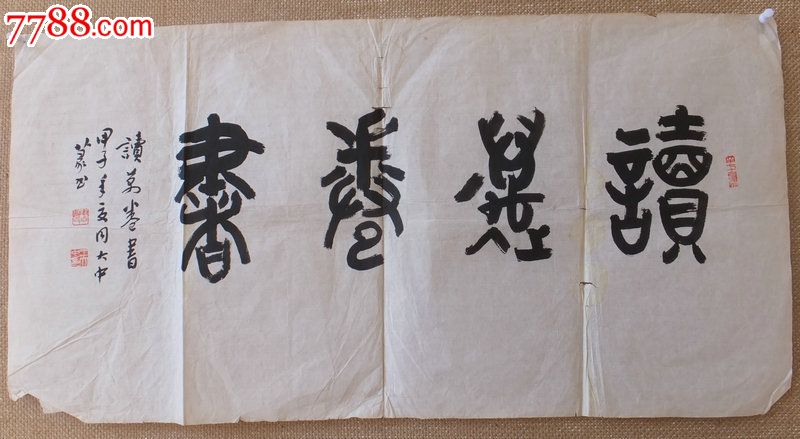 7788.com
讀萬卷書
讀萬卷書
甲子年夏周大中
篆書